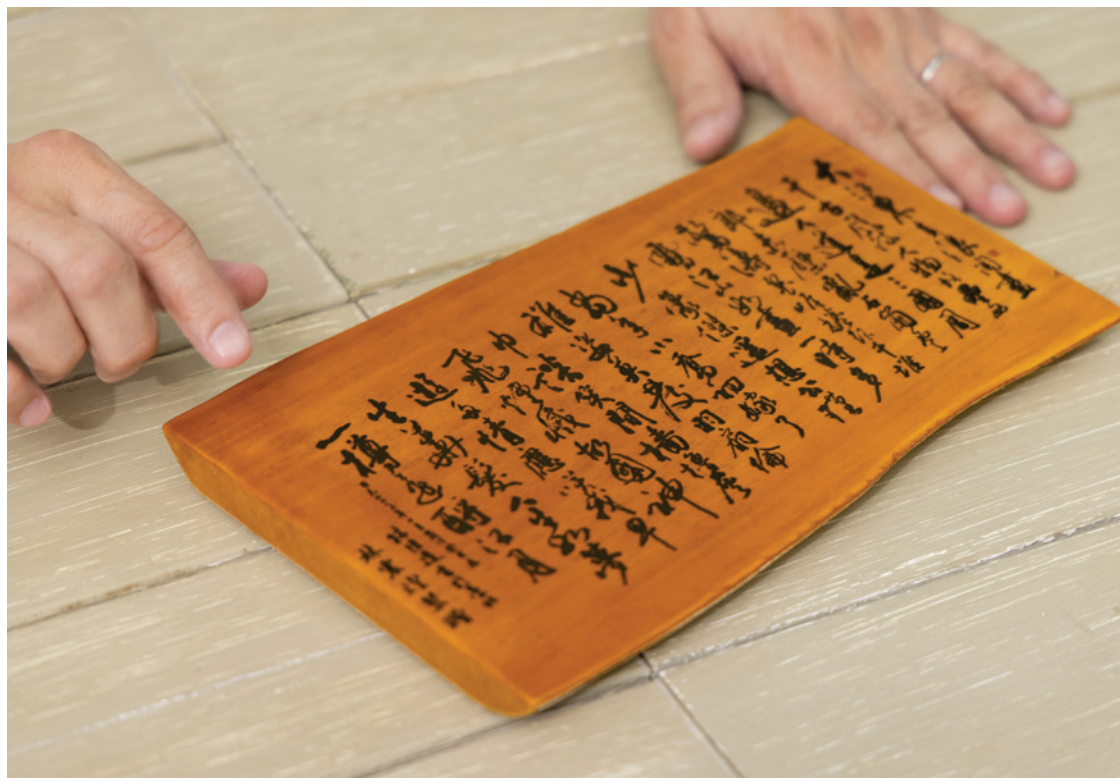 大江東去浪淘盡
千古風流人物故壘西
邊人道是三國周
郎赤壁亂石
驚濤岸捲起千堆
雪江山如畫一時多
少豪傑遙想公瑾
當年小喬初嫁了
雄姿英發羽扇綸
巾談笑間檣櫓
飛滅故國神
遊多情應笑我早
生華髮人生如夢
一樽還酹江月